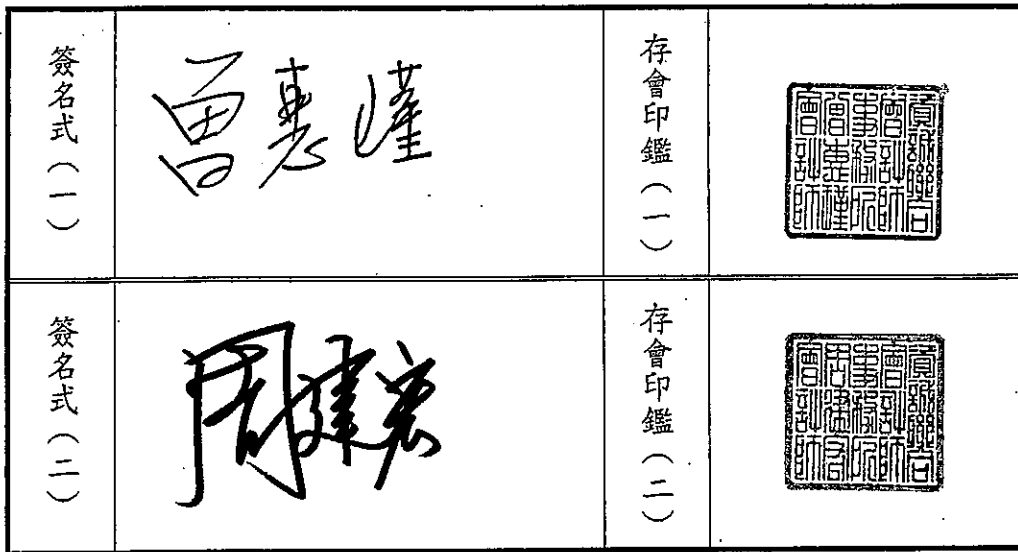 簽名式（一）
曾惠瑾
存會印鑑（一）
資誠聯合
會計師
事務所
曾惠瑾
會計師
簽名式（二）
周建宏
存會印鑑（二）
資誠聯合
會計師
事務所
周建宏
會計師